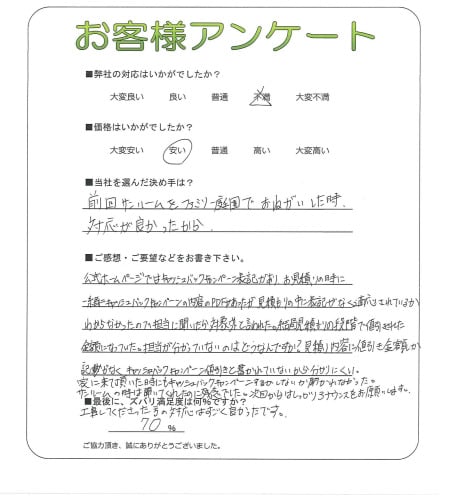 お客様アンケート
■弊社の対応はいかがでしたか?
大変良い 良い 普通 不満 大変不満
■価格はいかがでしたか?
大変安い 安い 普通 高い 大変高い
■当社を選んだ決め手は?
前回サンルームをファミリー庭園でおねがいした時、
対応が良かったから
■ご感想・ご要望などをお書き下さい。
公式ホームページではキャッシュバックキャンペーン表記があり お見積りの時に
一緒にキャッシュバックキャンペーンの内容のPDFがあったが見積もりの中に表記がなく適応されているか
わからなかったので担当に聞いたら対象外と言われた。結局見積もりの段階で値引された
金額になっていた。担当が分かっていないのはどうなんですか?見積り内容に値引き金額が
記載がなく キャッシュバックキャンペーン値引きと書かれていないから分かりにくい。
家に来て頂いた時にもキャッシュバックキャンペーンするかしないか聞かれなかった。
サンルームの時は聞いてくれたのに残念でした。次回からはしっかりアナウンスをお願いします。
■最後に、ズバリ満足度は何%ですか?
工事してくださった方の対応はすごく良かったです。
70 %
ご協力頂き、誠にありがとうございました。